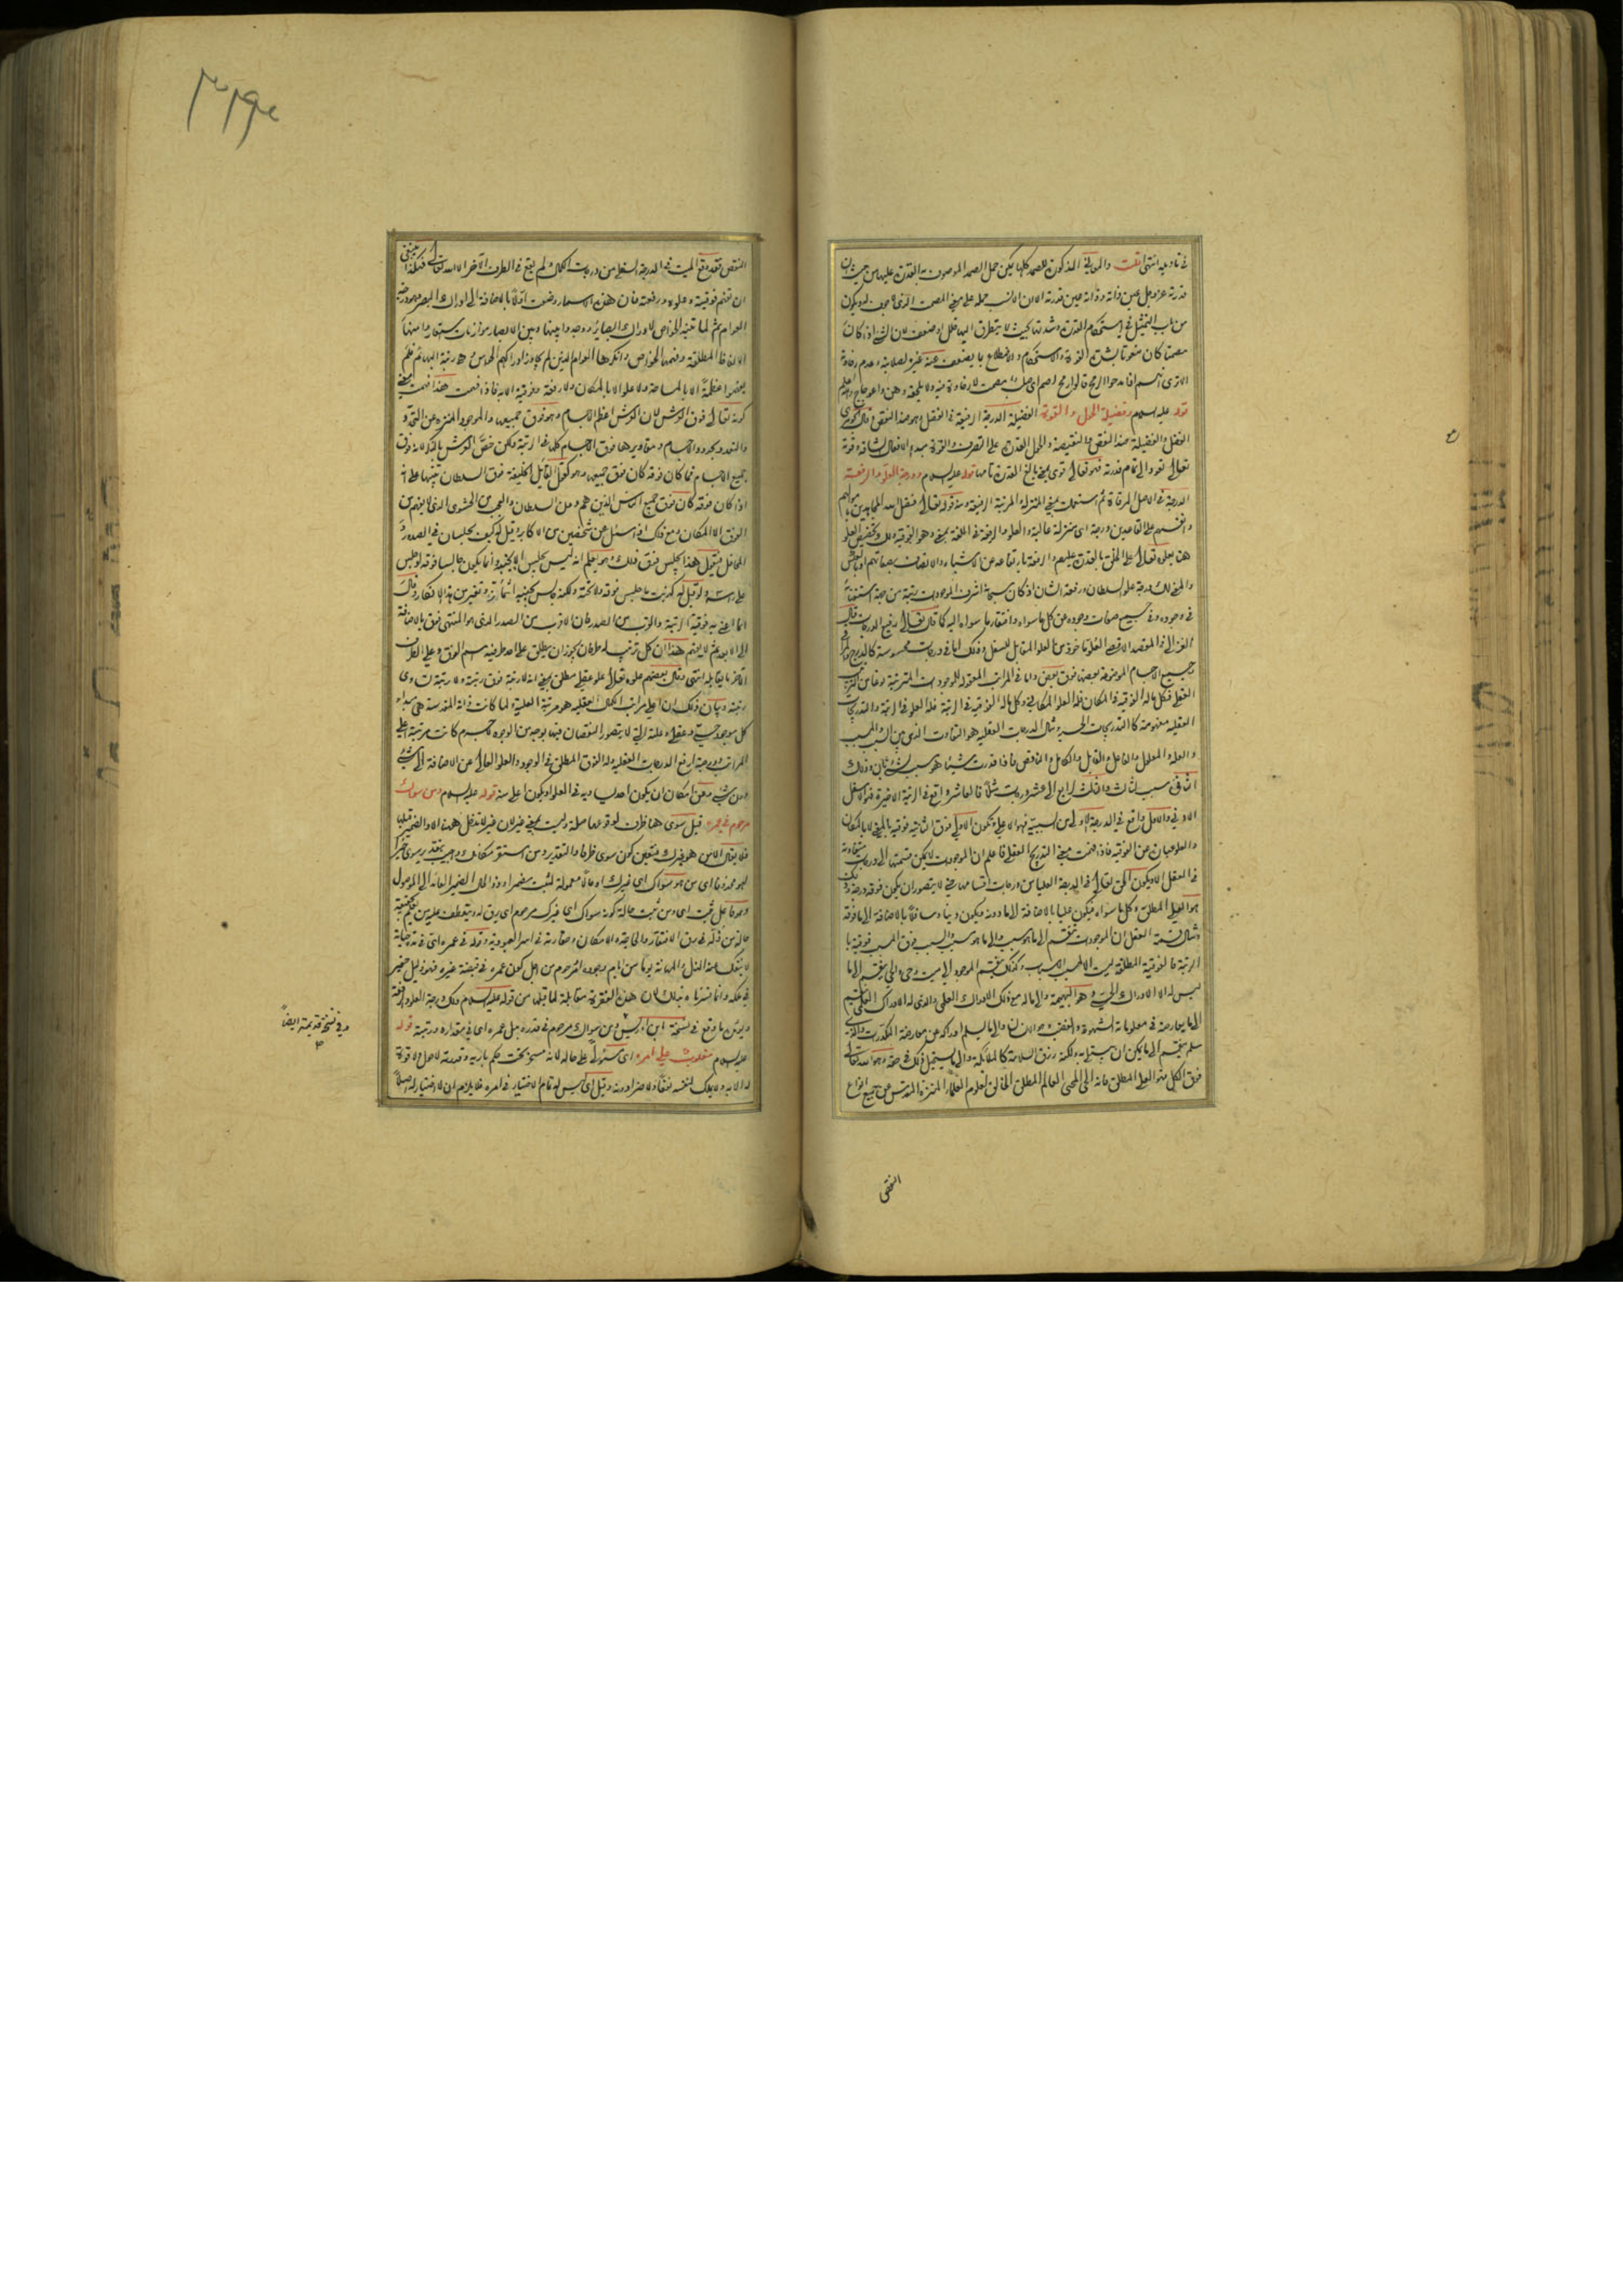 في تأويله انتهى قلت والمعاني المذكورة للصمد كلها يمكن حمل الصمد الموصوف به القدرة عليها من حيث ان
قدرته عز وجل عين ذاته وذاته عين قدرته الا ان الانسب حمله على معنى المصمت الذي لا جوف له ويكون
من باب التمثيل في استحكام القدرة وشدتها بحيث لا يتطرق اليها خلل او ضعف لان الشيء اذا كان
مصمتا كان منعوتا بشدة القوة والاستحكام والاضطلاع بما يضعف عنه غيره لصلابته وعدم رخاوة
قوله عليه السلام وفضيلة الحول والقوة الفضيلة الدرجة الرفيعة في الفضل وهو ضد النقص قال الجوهري
الفضل والفضيلة ضد النقص والنقيصة والحول القدرة على التصرف والقوة مبدء الافعال الشاقة وقوة
تعالى تعود الى تمام قدرته فهو تعالى قوي بمعنى بالغ القدرة تامها قوله عليه السلام ودرجة العلو والرفعة
الدرجة في الاصل المرقاة ثم استعملت بمعنى المنزلة والمرتبة الرفيعة ومنه قوله تعالى فضل الله المجاهدين باموالهم
وانفسهم على القاعدين درجة اي منزلة عالية والعلو والرفعة في اللغة بمعنى وهو الفوقية
والمعنى لك درجة علو السلطان ورفعة الشان اذ كان سبحانه اشرف الموجودات رتبة من جهة استغنائه
في وجوده وفي جميع صفات وجوده عن كل ما سواه وافتقار ما سواه اليه كما قال تعالى رفيع الدرجات قال
الغزالي في المقصد الاقصى العلي مأخوذ من العلو المقابل للسفل وذلك اما في درجات محسوسة كالدرج والمراقي
وجميع الاجسام الموضوعة بعضها فوق بعض واما في المراتب المعقولة للموجودات المترتبة نوعا من الترتيب
العقلي فكل ما له الفوقية في المكان فله العلو المكاني وكل ما له الفوقية في الرتبة فله العلو في الرتبة والتدريجات
العقلية مفهومة كالتدريجات الحسية ومثال الدرجات العقلية هو التفاوت الذي بين السبب والمسبب
والعلة والمعلول والفاعل والقابل والكامل والناقص فاذا قدرت شيئا هو سبب لشيء ثان وذلك
الثاني سبب لثالث والثالث لرابع الى عشر درجات مثلا فالعاشر واقع في الرتبة الاخيرة فهو الاسفل
الادنى والاول واقع في الدرجة الاولى من السببية فهو الاعلى ويكون الاول فوق الثاني فوقية بالمعنى لا بالمكان
والعلو عبارة عن الفوقية فاذا فهمت معنى التدريج العقلي فاعلم ان الموجودات لا يمكن قسمتها الى درجات متفاوتة
في العقل الا ويكون الحق تعالى في الدرجة العليا من درجات اقسامها حتى لا يتصور ان يكون فوقه درجة وذلك
هو العلي المطلق وكل ما سواه فيكون عليا بالاضافة الى ما دونه ويكون دنيا وسافلا بالاضافة الى ما فوقه
ومثال قسمة العقل ان الموجودات تنقسم الى ما هو سبب والى ما هو مسبب والسبب فوق المسبب فوقية با
لرتبة فالفوقية المطلقة ليست الا لمسبب الاسباب وكذلك ينقسم الموجود الى ميت وحي والحي ينقسم الى ما
ليس له الا الادراك الحسي وهو البهيمة والى ما له مع ذلك الادراك العقلي والذي له الادراك العقلي ينقسم
الى ما يعارضه في معلوماته الشهوة والغضب وهو الانسان والى ما يسلم ادراكه عن معارضة المكدرات والذي
يسلم ينقسم الى ما يمكن ان يبتلى به ولكن رزق السلامة كالملائكة والى ما يستحيل ذلك في حقه وهو الله تعالى
فوق الكل فهو العلي المطلق فانه الحي المحيي العالم المطلق الخالق لعلوم العلماء المنزه المقدس عن جميع انواع
النقص
النقص فقد وقع الميت في الدرجة السفلى من درجات الكمال ولم يقع في الطرف الآخر الا الله تعالى فهكذا ينبغي
ان تفهم فوقيته وعلوه ورفعته فان هذه الاسماء وضعت اولا بالاضافة الى ادراك البصر وهو درجة
العوام ثم لما تنبه الخواص لادراك البصائر ووجدوا بينها وبين الابصار موازنات استعاروا منها
الالفاظ المطلقة وفهمها الخواص وانكرها العوام الذين لم يجاوز ادراكهم الحواس وهو رتبة البهائم فلم
يفهموا عظمة الا بالمساحة ولا علوا الا بالمكان ولا رفعة وفوقية الا به فاذا فهمت هذا فهمت معنى
كونه تعالى فوق العرش لان العرش اعظم الاجسام وهو فوق جميعها والموجود المنزه عن التحدد
والتقدر بحدود الاجسام ومقاديرها فوق الاجسام كلها في الرتبة ولكن خص العرش بالذكر لانه فوق
جميع الاجسام فما كان فوقه كان فوق جميعها وهو كقول القائل الخليفة فوق السلطان تنبيها على انه
اذا كان فوقه كان فوق جميع الناس الذين هم دون السلطان والعجب من الحشوي الذي لا يفهم من
الفوق الا المكان ومع ذلك اذا سئل عن شخصين من الاكابر وقيل له كيف يجلسان في الصدر و
المحافل فيقول هذا يجلس فوق ذلك وهو يعلم انه ليس يجلس الا بجنبه وانما يكون جالسا فوقه لو جلس
على رأسه ولو قيل له كذبت ما جلس فوقه ولا تحته ولكنه جلس بجنبه اشمأز وتغير من هذا الانكار وقال
انما اعني به فوقية الرتبة والقرب من الصدر فان الاقرب من الصدر الذي هو المنتهى فوق بالاضافة
الى الابعد ثم لا يفهم هذا ان كل ترتيب له طرفان يجوز ان يطلق على احد طرفيه اسم الفوق وعلى الطرف
الآخر ما يقابله انتهى وقال بعضهم علوه تعالى علو عقلي مطلق بمعنى انه لا رتبة فوق رتبته ولا رتبة تساوي
رتبته وبيان ذلك ان اعلى مراتب الكمال العقلية هو مرتبة العلية ولما كانت ذاته المقدسة هي مبداء
كل موجود حسي وعقلي وعلته التي لا يتصور النقصان فيها بوجه من الوجوه لا جرم كانت مرتبته اعلى
المراتب ودرجته ارفع الدرجات العقلية وله الفوق المطلق في الوجود والعلو العالي عن الاضافة الى شيء
دون شيء وعن امكان ان يكون احد يساويه في العلو او يكون اعلى منه قوله عليه السلام ومن سواك
مرحوم في عمره قيل سوى هنا ظرف لوقوعها صلة وليست بمعنى غير لان غير لا تدخل هنا الا والضمير قبلها
فلا يقال الا من هو غيرك ويتعين كون سوى ظرفا والتقدير ومن استقر مكانك
لهو محذوفا اي من هو سواك اي غيرك او حالا معمولة لثبت مضمرا وذو الحال الضمير العائد الى الموصول
وهو فاعل ثبت اي ومن ثبت حالة كونه سواك اي غيرك مرحوم اي يرق له ويتعطف عليه من يعلم حقيقة
لا ينفك عنه الذل والمهانة يوما من ايام وجوده
في ملكه وانما فسرناه بذلك لان هذه الفقرة مقابلة لما قبلها من قوله عليه السلام ولك درجة العلو والرفعة
ويؤيده ما وقع في نسخة ابن ادريس ومن سواك مرحوم في قدره بدل عمره اي في مقداره ورتبته قوله
عليه السلام مغلوب على امره اي مستولى على حاله لانه مسخر تحت حكم باريه وقدرته لا حول ولا قوة
له الا به ولا يملك لنفسه نفعا ولا ضرا دونه وقيل اي ليس له تمام الاختيار في امره فلا يلزم ان لا اختيار له اصلا
وفي نسخة قديمة ايضا